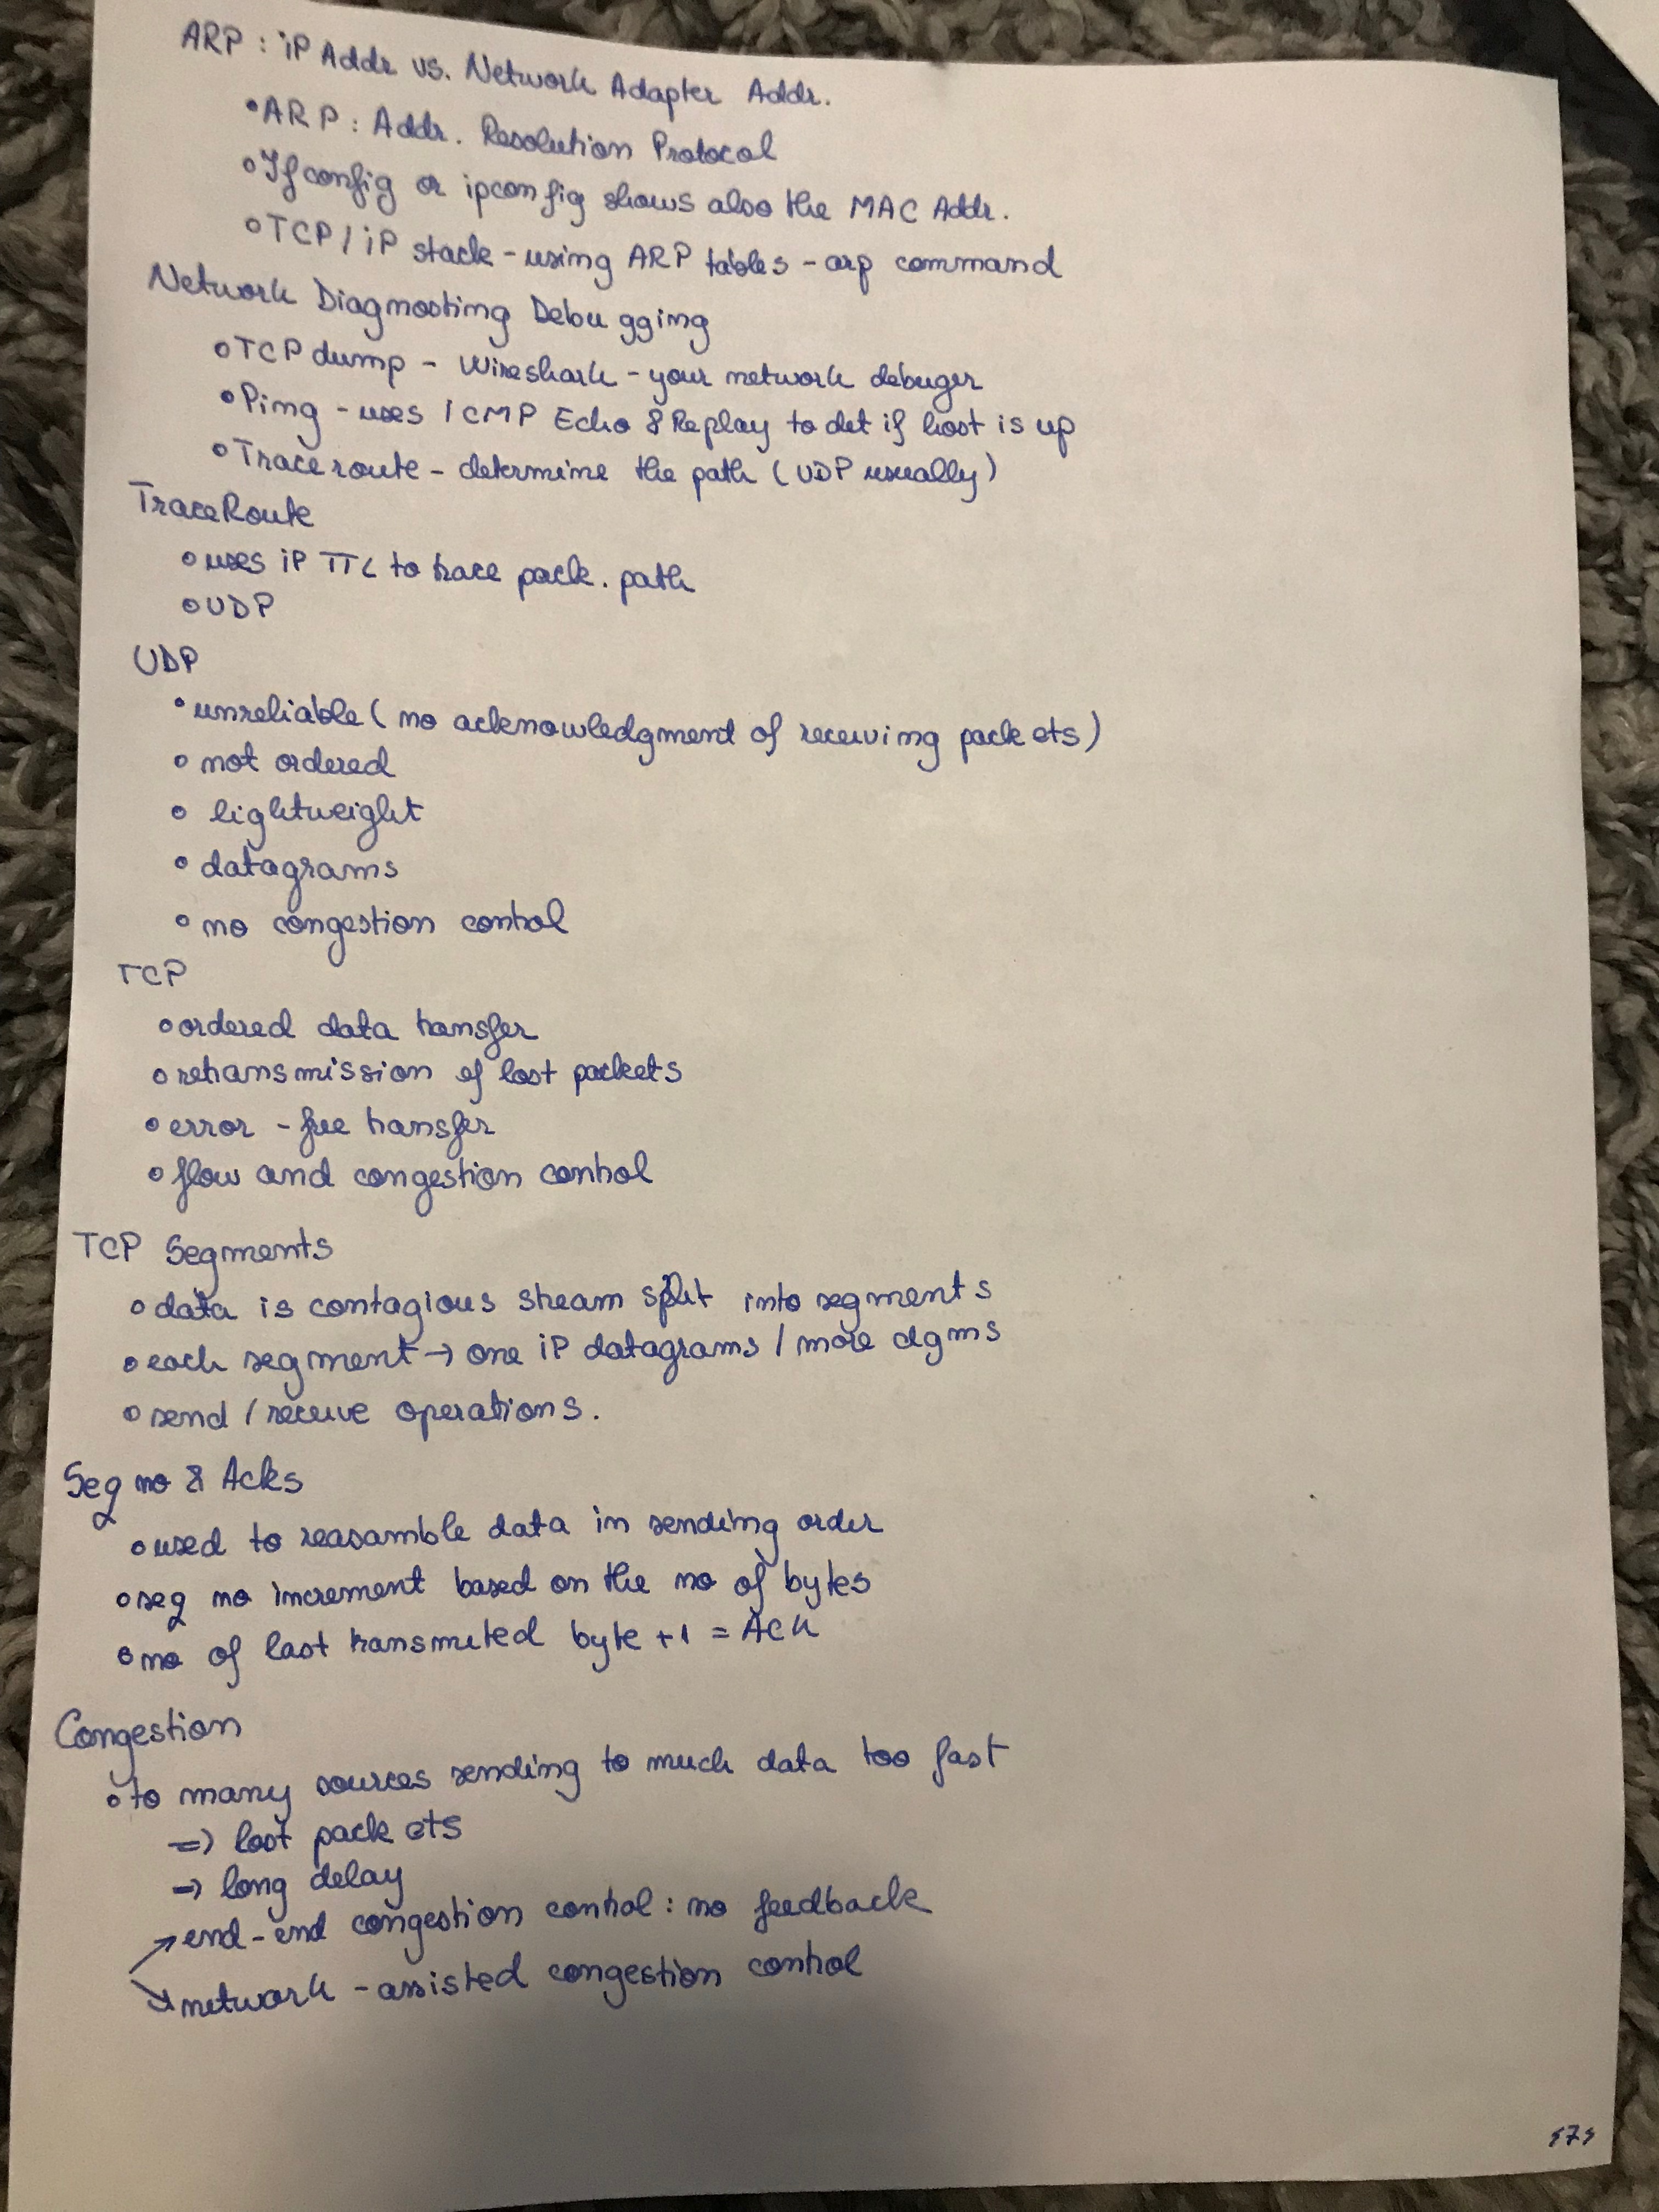 ARP : iP Addr vs. Network Adapter Addr.
• ARP : Addr. Resolution Protocol
o Ifconfig or ipconfig shows also the MAC Addr.
o TCP / iP stack - using ARP tables - arp command
Network Diagnosting Debugging
o TCP dump - Wireshark - your network debuger
• Ping - uses ICMP Echo & Replay to det if host is up
o Traceroute - determine the path (UDP usually)
TraceRoute
o uses iP TTL to trace pack. path
o UDP
UDP
• unreliable ( no acknowledgment of receiving packets)
o not ordered
o lightweight
o datagrams
o no congestion control
TCP
o ordered data transfer
o retransmission of lost packets
o error - free transfer
o flow and congestion control
TCP Segments
o data is contagious stream split into segments
o each segment → one iP datagrams / more dgms
o send / receive operations.
Seq no & Acks
o used to reasamble data in sending order
o seq no increment based on the no of bytes
o no of last transmited byte +1 = Ack
Congestion
o to many sources sending to much data too fast
=> lost packets
→ long delay
↗ end-end congestion control : no feedback
↘ network - assisted congestion control